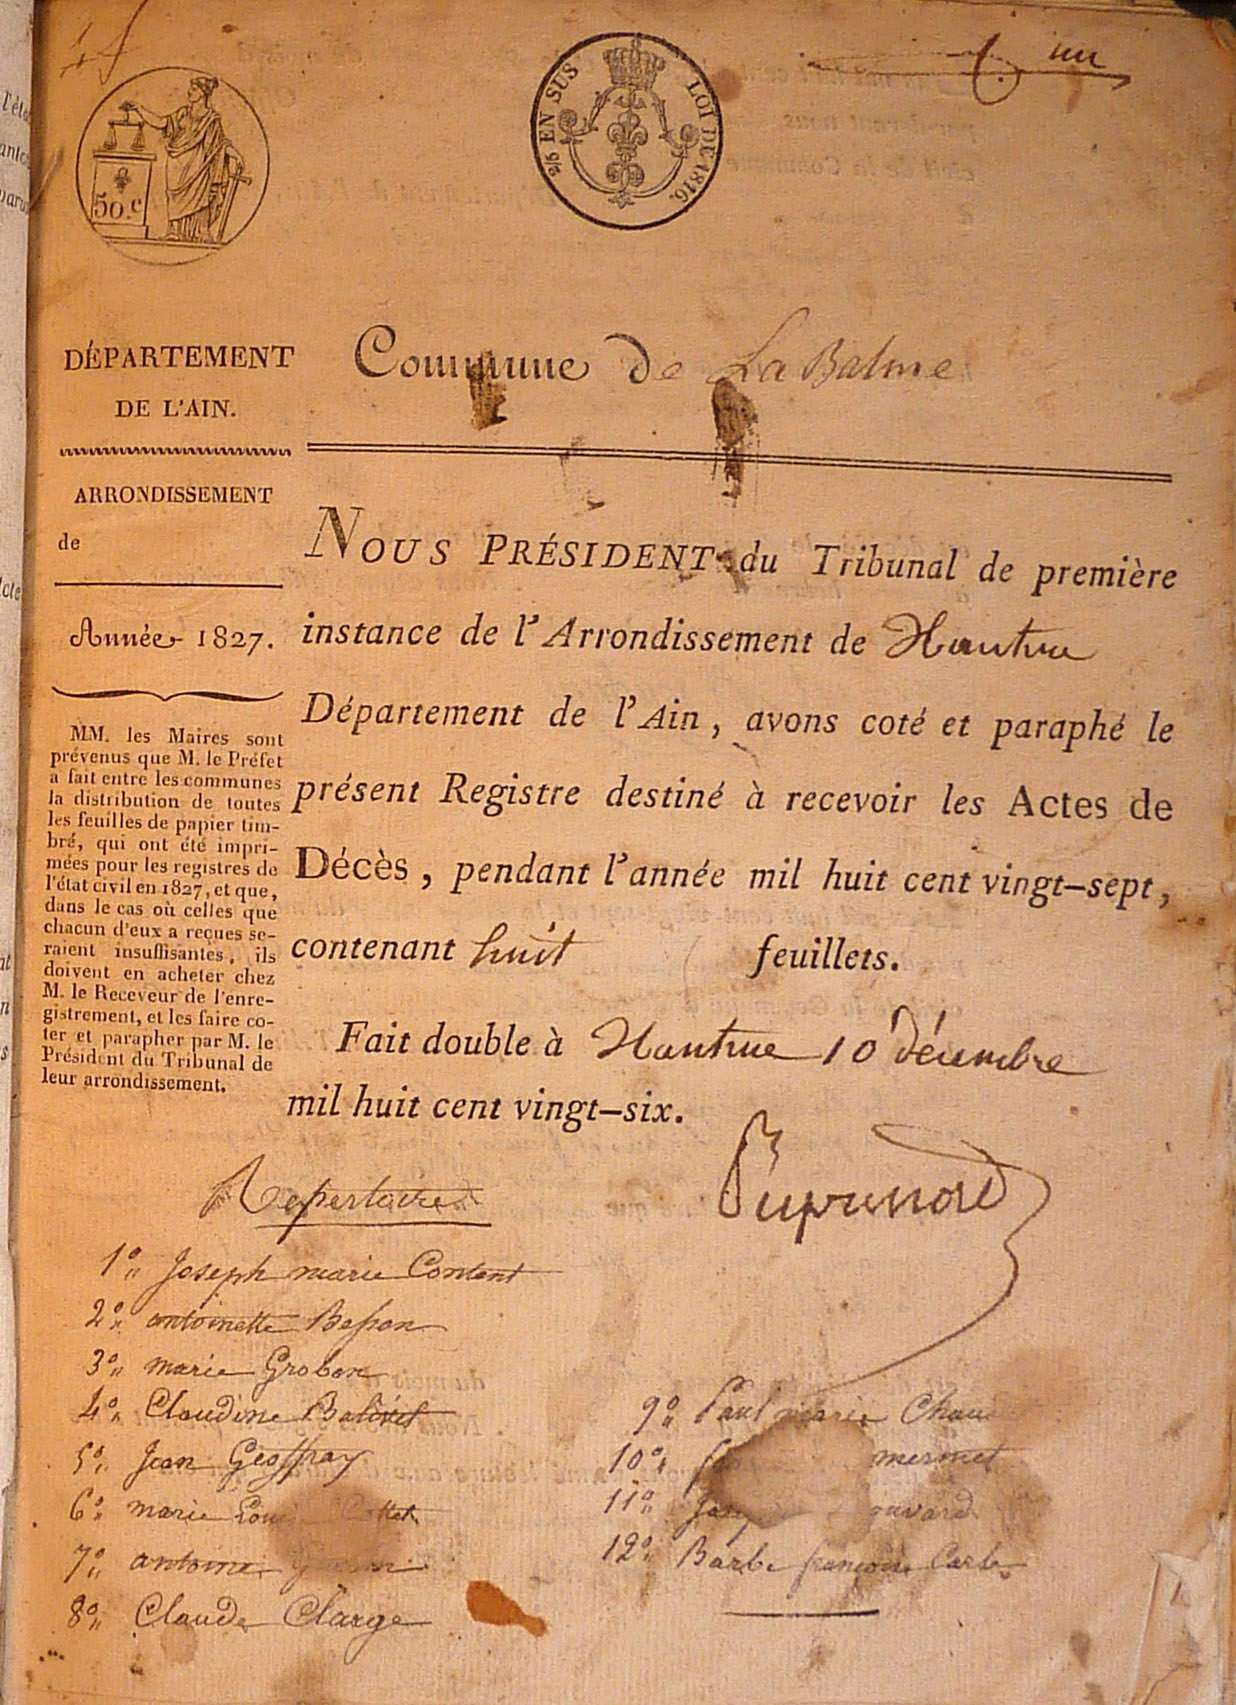 50.c
2/5 EN SUS
LOI DE 1816.
un
DÉPARTEMENT
DE L'AIN.
ARRONDISSEMENT
de
Année 1827.
MM. les Maires sont
prévenus que M. le Préfet
a fait entre les communes
la distribution de toutes
les feuilles de papier tim-
bré, qui ont été impri-
mées pour les registres de
l'état civil en 1827, et que,
dans le cas où celles que
chacun d'eux a reçues se-
raient insuffisantes, ils
doivent en acheter chez
M. le Receveur de l'enre-
gistrement, et les faire co-
ter et parapher par M. le
Président du Tribunal de
leur arrondissement.
Commune de La Balme
NOUS PRÉSIDENT du Tribunal de première
instance de l'Arrondissement de Nantua
Département de l'Ain, avons coté et paraphé le
présent Registre destiné à recevoir les Actes de
Décès, pendant l'année mil huit cent vingt-sept,
contenant huit feuillets.
Fait double à Nantua 10 décembre
mil huit cent vingt-six.
Repertoire
1° Joseph marie Content
2° antoinette Besson
3° marie Grobon
4° Claudine Balivet
5° Jean Geoffray
6° marie
7° antoine
8° Claude Clarge
9° Paul marie
10° mermet
11°
12° Barbe françoise